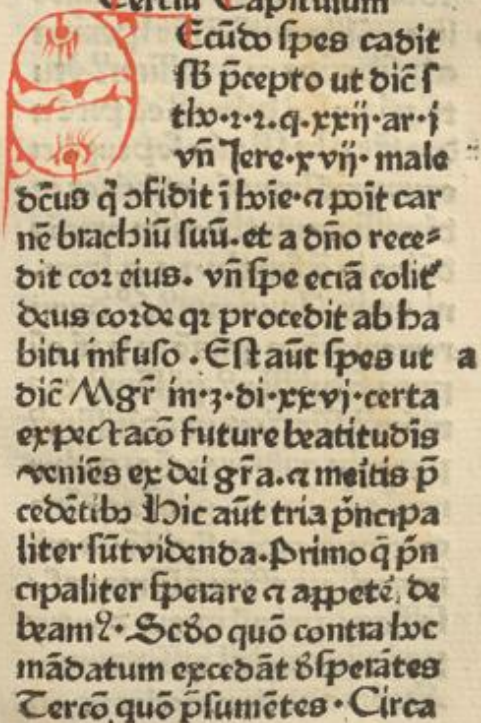 Terciū Capitulum
SEcūdo spes cadit
sb p̄cepto ut dic̄ s
tho·2·2·q·xxij·ar·j
vn̄ Iere·xvij·male
dc̄us q̇ ꝯfidit ī hoīe·⁊ poīt car
nē brachiū suū·et a dn̄o rece⸗
dit cor eius. vn̄ spe eciā colit᷑
deus corde qꝛ procedit ab ha
bitu infuso . Est aūt spes ut a
dic̄ Mgr̄ in·3·di·xxvj·certa
expectacō future beatitudīs
veniēs ex dei gr̄a·⁊ meītis p̄
cedētibꝫ Hic aūt tria p̄ncipa
liter sūt videnda·Primo q̄ p̄n
cipaliter sperare ⁊ appetē de
beamꝰ·Scd̄o quō contra hoc
mādatum excedāt d̄sperātes
Tercō quō p̄sumētes·Circa